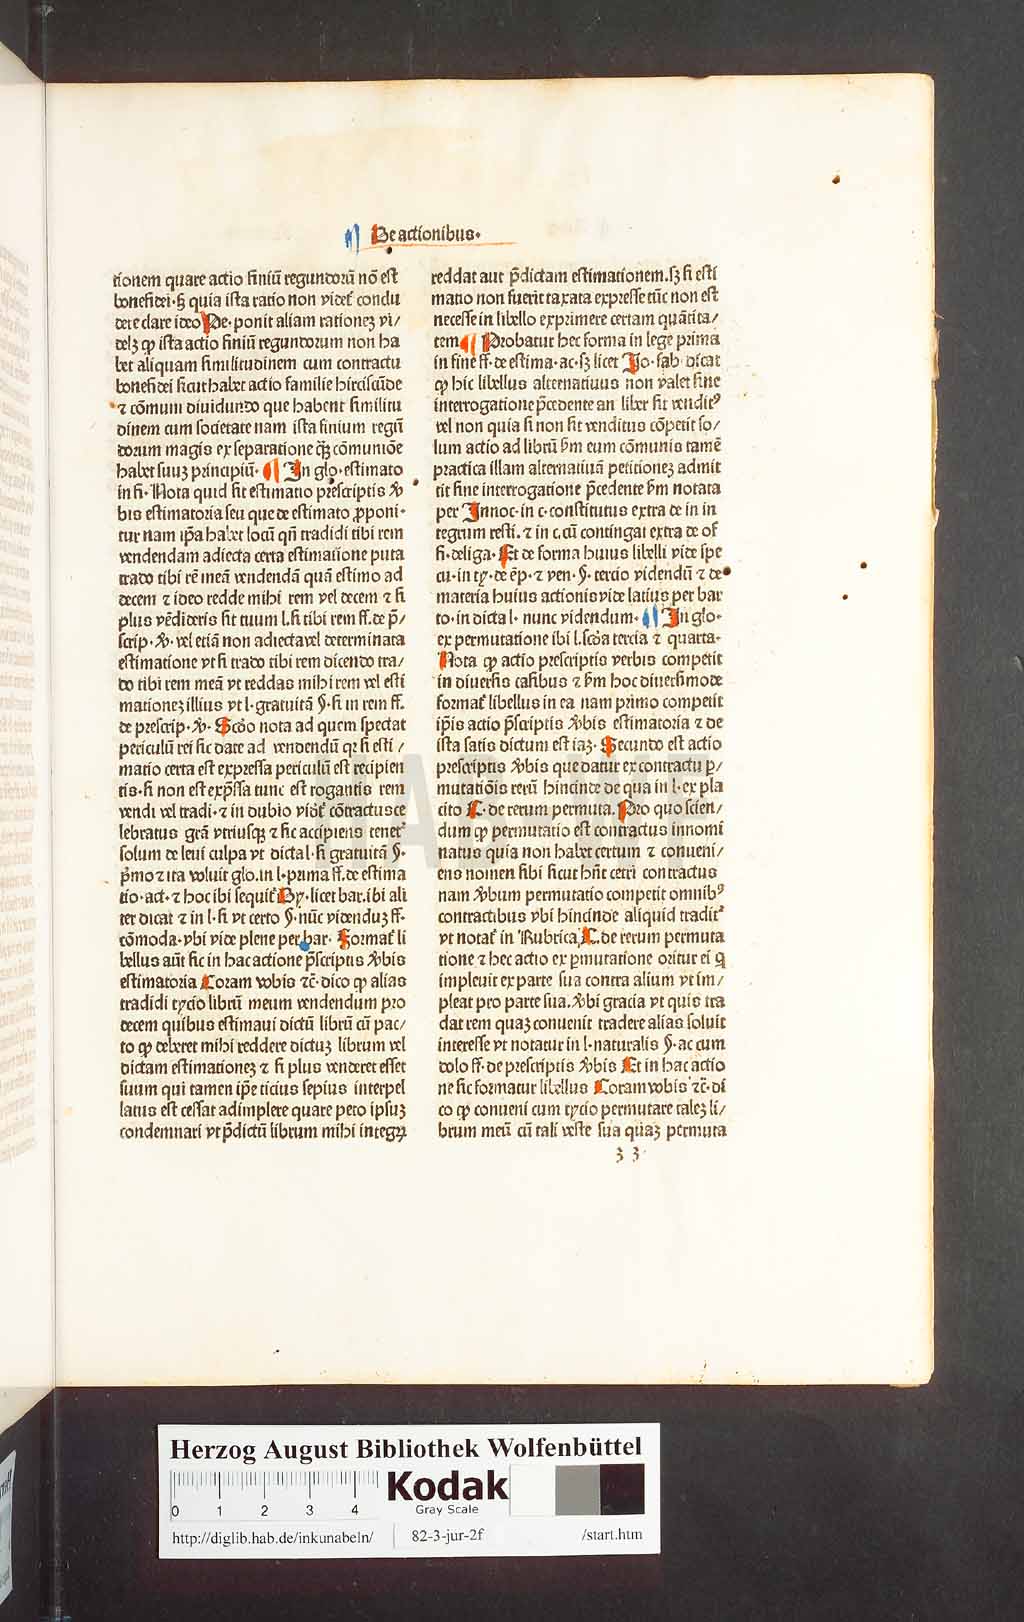 De actionibus.
tionem quare actio finiũ regundorũ nõ est
bonefidei·ꝫ quia ista ratio non videt᷑ conclu
dere clare ideo Pe·ponit aliam rationeꝫ vi/
delꝫ ꝙ ista actio finiũ regundorum non ha
bet aliquam similitudinem cum contractu
bonefidei sicut habet actio familie hirciscũde
⁊ cõmum diuidundo que habent similitu
dinem cum societate nam ista finium regũ
dorum magis ex separatione qꝫ cõmunioe
habet suuꝫ principiũ· In glo·estimato
in fi·Nota quid sit estimatio prescriptis v̾
bis estimatoria seu que de estimato ꝓponi·
tur nam ip̃a habet locũ qñ tradidi tibi rem
vendendam adiecta certa estimatione puta
trado tibi rẽ meã vendendã quã estimo ad
decem ⁊ ideo redde mihi rem vel decem ⁊ si
plus vẽdideris sit tuum l.si tibi rem ff.de p̃/
scrip·v̾·vel etiã non adiecta vel determinata
estimatione vt si trado tibi rem dicendo tra/
do tibi rem meã vt reddas mihi rem vel esti
mationeꝫ illius vt l·gratuitã §·si in rem ff.
de prescrip·v̾·Scd̃o nota ad quem spectat
periculũ rei sic date ad vendendũ qꝛ si esti/
matio certa est expressa periculũ est recipien
tis·si non est exp̃ssa tunc est rogantis rem
vendi vel tradi·⁊ in dubio vider᷑ cõtractus ce
lebratus grã vtriusqꝫ ⁊ sic accipiens tenet᷑
solum de leui culpa vt dicta l·si gratuitã §·
p̃mo ⁊ ita voluit glo.in l·prima ff.de estima
tio·act·⁊ hoc ibi sequit᷑ By·licet bar.ibi ali
ter dicat ⁊ in l·si vt certo §·nũc videnduꝫ ff·
cõmoda·vbi vide plene per bar· Format᷑ li
bellus aũt sic in hac actione p̃scriptis v̾bis
estimatoria Coram vobis ⁊c̃·dico ꝙ alias
tradidi tycio librũ meum vendendum pro
decem quibus estimaui dictũ librũ cũ pac/
to ꝙ deberet mihi reddere dictuꝫ librum vel
dictam estimationeꝫ ⁊ si plus venderet esset
suum qui tamen ip̃e ticius sepius interpel
latus est cessat adimplere quare peto ipsuꝫ
condemnari vt p̃dictũ librum mihi integꝝ
reddat aut p̃dictam estimationem.sꝫ si esti
matio non fuerit taxata expresse tũc non est
necesse in libello exprimere certam quãtita/
tem Probatur hec forma in lege prima
in fine ff·de estima·ac·sꝫ licet Jo·fab·dicat
ꝙ hic libellus alternatiuus non valet sine
interrogatione p̃cedente an liber sit vendit⁹
vel non quia si non sit venditus cõpetit so/
lum actio ad librũ ẜm eum cõmunis tamẽ
practica illam alternatiuã petitioneꝫ admit
tit sine interrogatione p̃cedente ẜm notata
per Innoc·in c·constitutus extra de in in
tegrum resti.⁊ in c.cũ contingat extra de of
fi·deliga·Et de forma huius libelli vide spe
cu·in ty·de ẽp·⁊ ven·§·tercio videndũ ⁊ de
materia huius actionis vide latius per bar
to·in dicta l·nunc videndum· In glo·
ex permutatione ibi l.scd̃a tercia ⁊ quarta·
Nota ꝙ actio prescriptis verbis competit
in diuersis casibus ⁊ ẜm hoc diuersimode
format᷑ libellus in ea nam primo competit
ip̃is actio p̃scriptis v̾bis estimatoria ⁊ de
ista satis dictum est iaꝫ·Secundo est actio
prescriptis v̾bis que datur ex contractu ꝑ/
mutatiõis rerũ hincinde de qua in l·ex pla
cito C·de rerum permuta. Pro quo scien/
dum ꝙ permutatio est contractus innomi
natus quia non habet certum ⁊ conueni/
ens nomen sibi sicut hñt ceteri contractus
nam v̾bum permutatio competit omnib⁹
contractibus vbi hincinde aliquid tradit᷑
vt notat᷑ in Rubrica C.de rerum permuta
tione ⁊ hec actio ex ꝑmutatione oritur ei q̃
impleuit ex parte sua contra alium vt im/
pleat pro parte sua.v̾bi gracia vt quis tra
dat rem quaꝫ conuenit tradere alias soluit
interesse vt notatur in l·naturalis §·ac cum
dolo ff·de prescriptis v̾bis Et in hac actio
ne sic formatur libellus Coram vobis ⁊c̃·di
co ꝙ conueni cum tycio permutare taleꝫ li/
brum meũ cũ tali veste sua quaꝫ permuta
33·
HAB WF
Herzog August Bibliothek Wolfenbüttel
Kodak
Gray Scale
0 1 2 3 4
http://diglib.hab.de/inkunabeln/ 82-3-jur-2f /start.htm